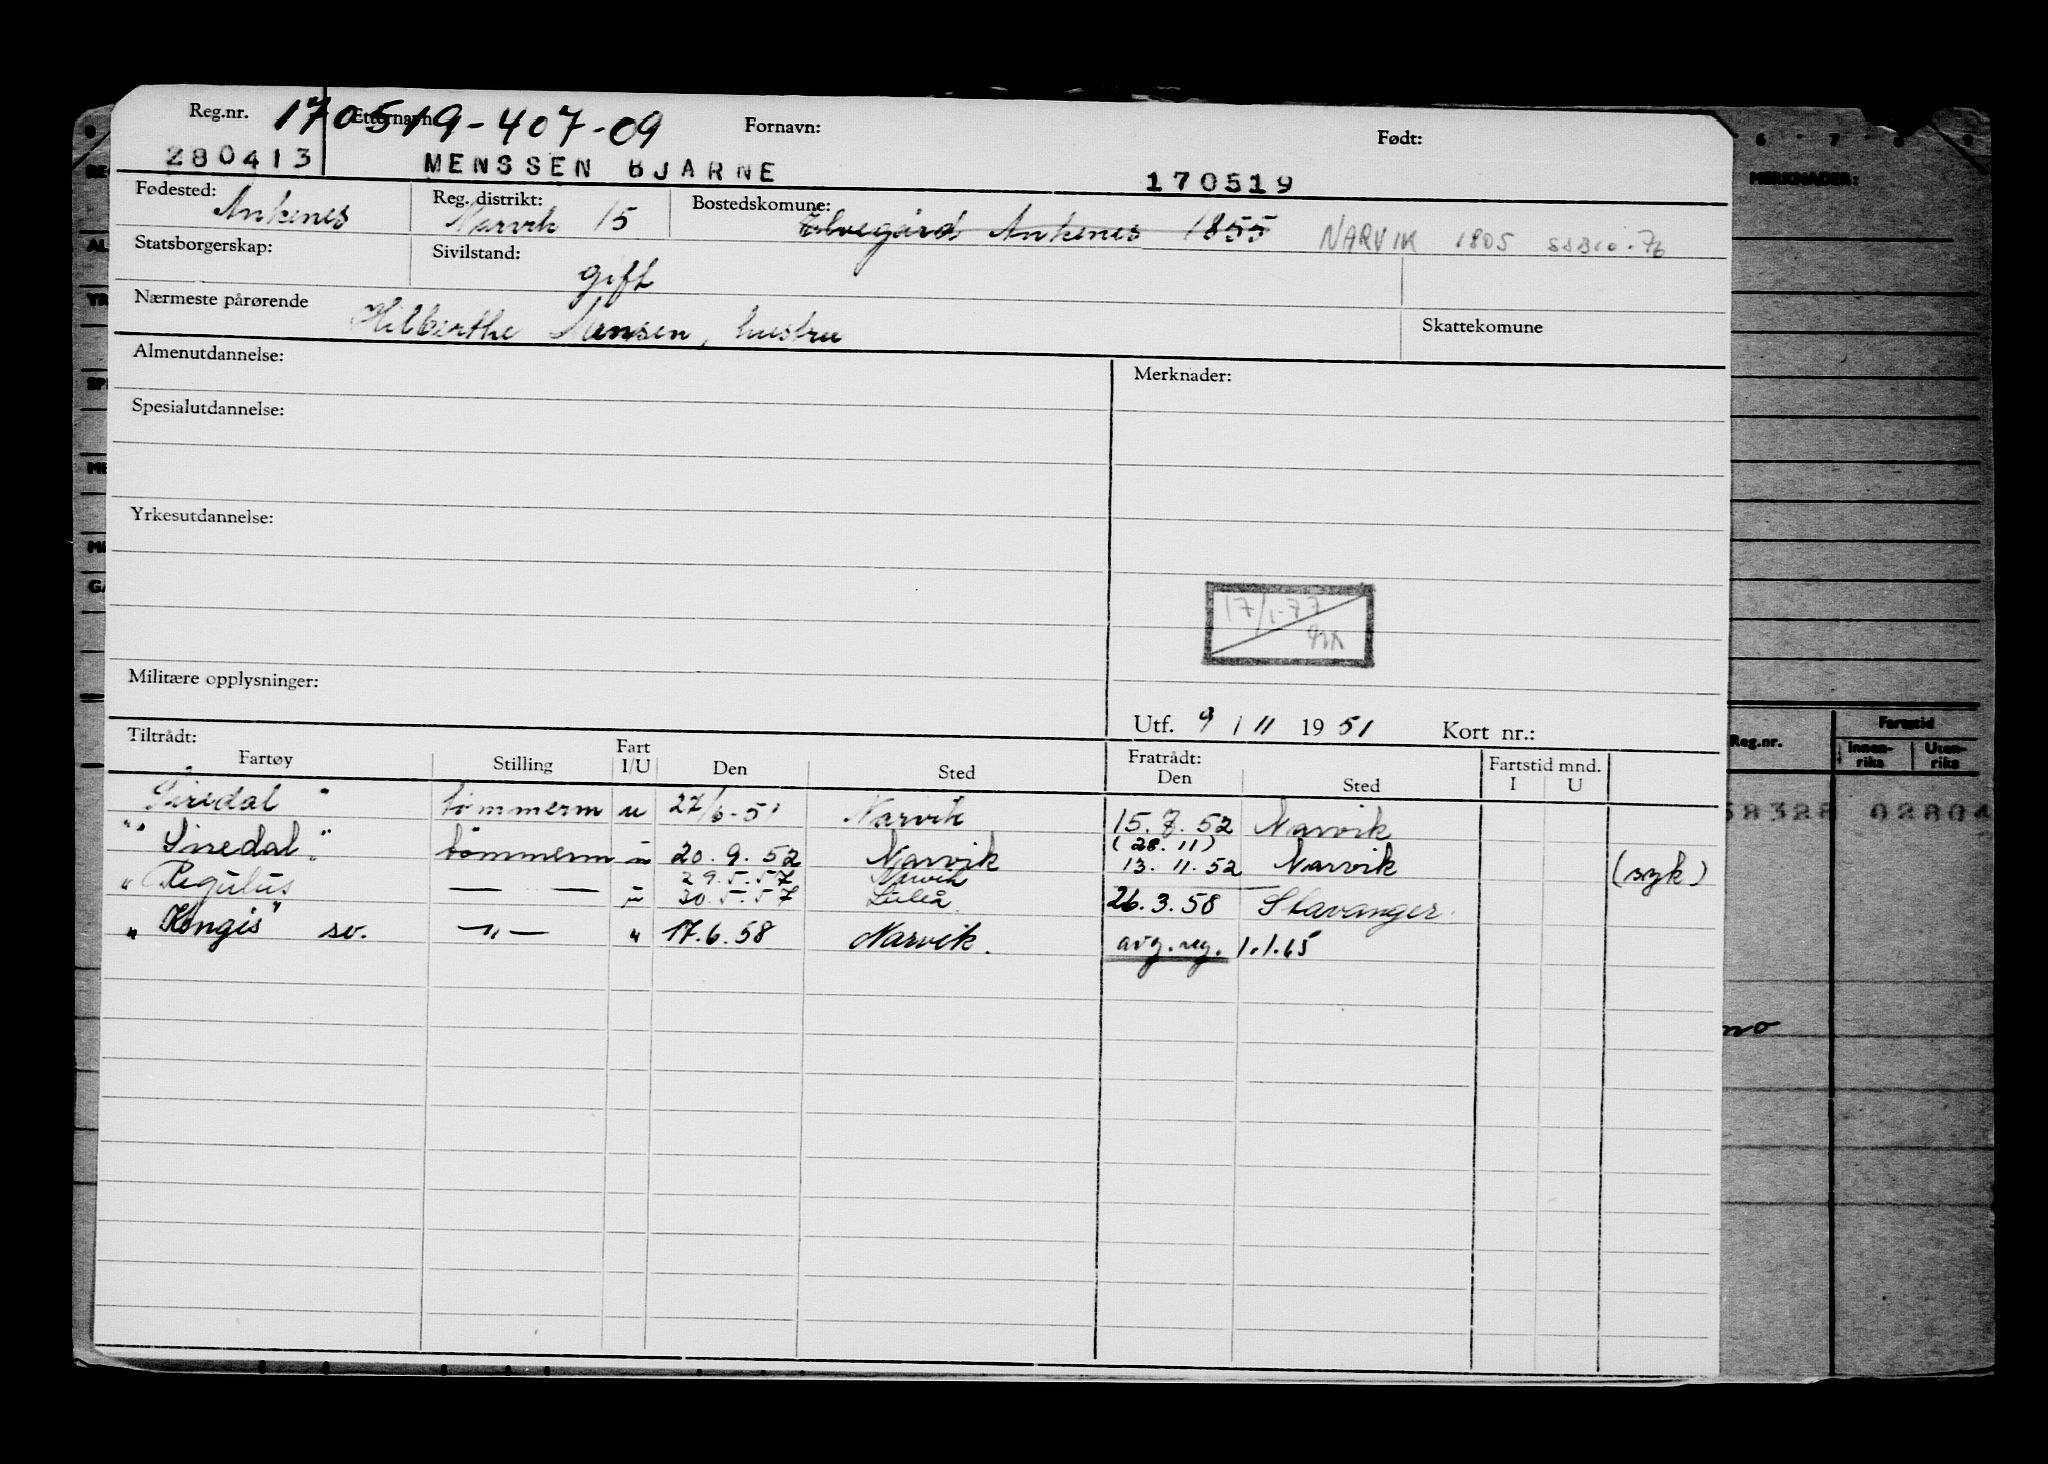 Reg.nr. 170519-407-09 Etternavn: Fornavn: Født:
280413 MENSSEN BJARNE 170519
Fødested: Ankenes Reg. distrikt: Narvik 15 Bostedskomune: Elvegård Ankenes 1855 NARVIK 1805
Statsborgerskap: Sivilstand: gift
Nærmeste pårørende Hilberthe Mensen, hustru Skattekomune
Almenutdannelse: Merknader:
Spesialutdannelse:
Yrkesutdannelse:
17/1-77
Militære opplysninger:
Utf. 9 / 11 1951 Kort nr.:
Tiltrådt: Fart Fratrådt: Fartstid mnd.
Fartøy Stilling I/U Den Sted Den Sted I U
Siredal " tømmerm u 27/6-51 Narvik 15.7.52 Narvik
(28.11)
"" Siredal " tømmerm u 20.9.52 Narvik 13.11.52 Narvik (syk)
29.5.57 Narvik
" Regulus — — u 30.5.57 Luleå 26.3.58 Stavanger.
" Kongis" sv. —"— " 17.6.58 Narvik. avg.reg. 1.1.65
6 7 8 9
MERKNADER:
Reg.nr. Fartstid
Innenriks Utenriks
58328 02804